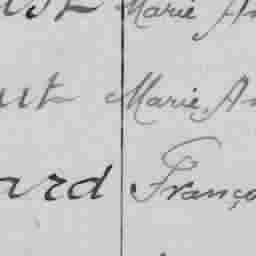 Marie An
ut Marie An
ard Franço